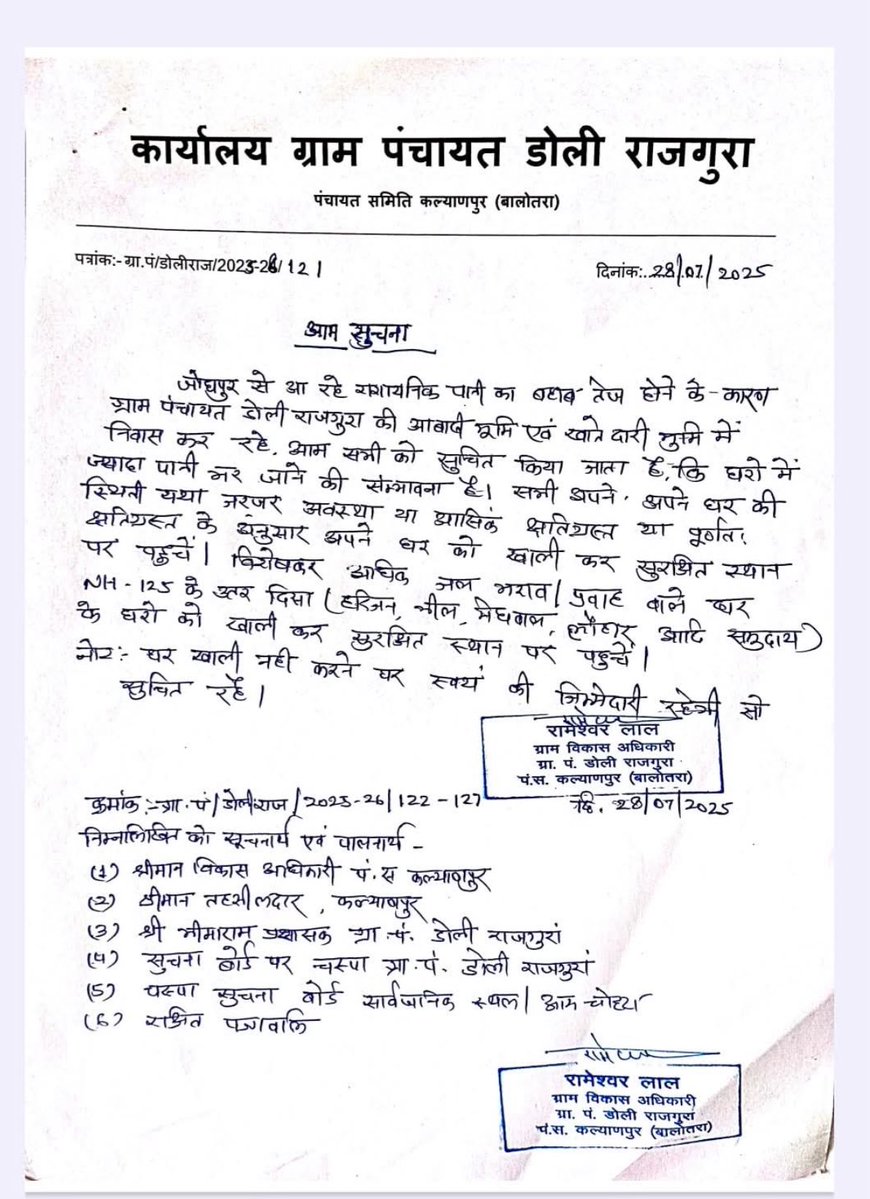 कार्यालय ग्राम पंचायत डोली राजगुरा
पंचायत समिति कल्याणपुर (बालोतरा)
पत्रांक:-ग्रा.पं/डोलीराज/2025-26/121
दिनांक:..28/07/2025
आम सुचना
जोधपुर से आ रहे रासायनिक पानी का बहाव तेज होने के-कारण
ग्राम पंचायत डोली राजगुरा की आबादी भूमि एवं खातेदारी भुमि में
निवास कर रहे, आम सभी को सुचित किया जाता है, कि घरो में
ज्यादा पानी भर जाने की सम्भावना है। सभी अपने, अपने घर की
स्थिती यथा जरजर अवस्था या आसिकं क्षतिग्रस्त या पूर्णतः
क्षतिग्रस्त के अनुसार अपने घर को खाली कर सुरक्षित स्थान
पर पहुचें। विशेषकर अधिक जल भराव/प्रवाह वाले घर
NH-125 के उतर दिसा (हरिजन, भील, मेघवाल, लौहार आदि समुदाय)
के घरो को खाली कर सुरक्षित स्थान पर पहुचें।
नोट:- घर खाली नही करने पर स्वयं की जिम्मेदारी रहेगी सो
सुचित रहें।
रामेश्वर लाल
ग्राम विकास अधिकारी
ग्रा. पं. डोली राजगुरा
पं.स. कल्याणपुर (बालोतरा)
क्रमांक:-ग्रा.पं/डोलीराज/2025-26/122-127
दि. 28/07/2025
निम्नालिखित को सूचनार्थ एवं पालनार्थ-
(1) श्रीमान विकास अधिकारी पं.स कल्याणपुर
(2) श्रीमान तहसीलदार, कल्याणपुर
(3) श्री भीमाराम प्रशासक ग्रा.पं. डोली राजगुरां
(4) सुचना बोर्ड पर चस्पा ग्रा.पं. डोली राजगुरां
(5) चस्पा सुचना बोर्ड सार्वजानिक स्थल/आम-चोहटा
(6) रक्षित पत्रावलि
रामेश्वर लाल
ग्राम विकास अधिकारी
ग्रा. पं. डोली राजगुरा
पं.स. कल्याणपुर (बालोतरा)